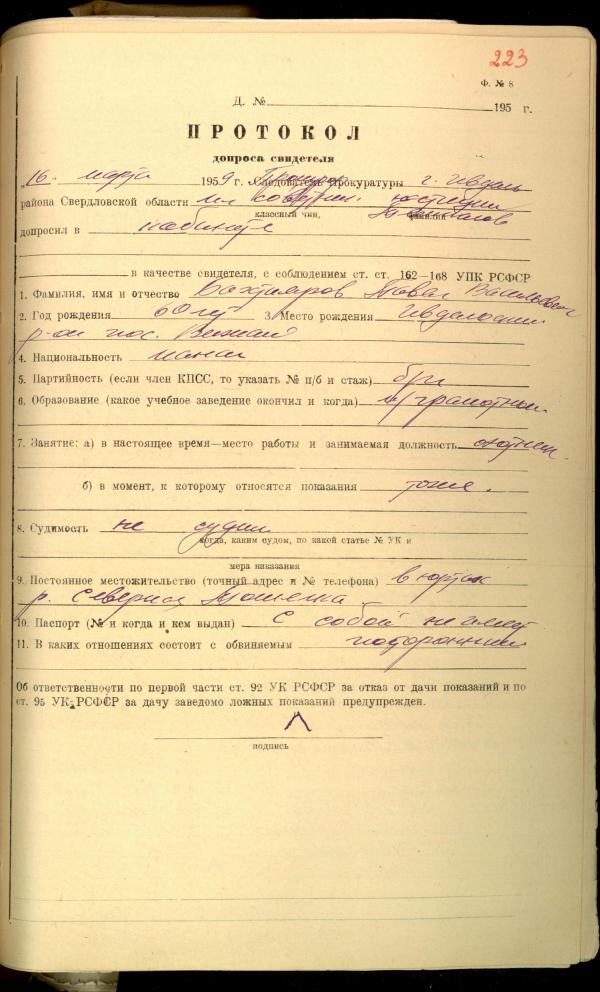 223
Ф. № 8
Д. № 195 г.
ПРОТОКОЛ
допроса свидетеля
„16" марта 1959 г. Прокурор Следователь прокуратуры г. Ивдель
района Свердловской области мл советник юстиции
классный чин, фамилия Темпалов
допросил в кабинете
в качестве свидетеля, с соблюдением ст. ст. 162—168 УПК РСФСР
1. Фамилия, имя и отчество Бахтияров Павел Васильевич
2. Год рождения 60 лет 3. Место рождения Ивдельский
р-он пос. Вижай
4. Национальность манси
5. Партийность (если член КПСС, то указать № п/б и стаж) б/п
6. Образование (какое учебное заведение окончил и когда) н/грамотный
7. Занятие: а) в настоящее время—место работы и занимаемая должность охотник
б) в момент, к которому относятся показания тоже.
8. Судимость не судим
когда, каким судом, по какой статье № УК и
мера наказания
9. Постоянное местожительство (точный адрес и № телефона) в юртах
р. Северная Тошемка
10. Паспорт (№ и когда и кем выдан) С собой не имеет
11. В каких отношениях состоит с обвиняемым посторонний
Об ответственности по первой части ст. 92 УК РСФСР за отказ от дачи показаний и по
ст. 95 УК РСФСР за дачу заведомо ложных показаний предупрежден.
подпись